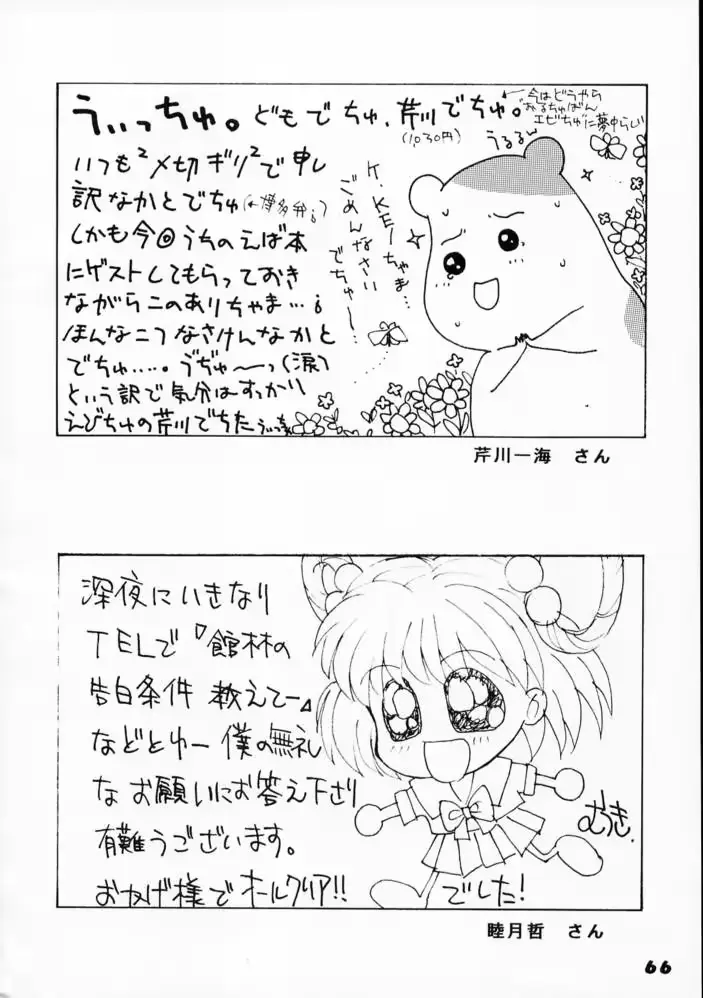 うぃっちゅ。どもでちゅ、芹川でちゅ。
(1030円)
←今はどうやら
おるちゅばん
エビちゅに夢中らしい
うるるん
いつも²〆切ギリ²で申し
訳なかとでちゅ(←博多弁。)
しかも今回うちのえば本
にゲストしてもらっておき
ながらこのありちゃま…。
ほんなこつなさけんなかと
でちゅ…。ゔぢゅ〜っ(涙)
という訳で気分はすっかり
えびちゅの芹川でちた
K.KEIちゃま…
ごめんなさい
でちゅ〜…
芹川一海 さん
深夜にいきなり
TELで『館林の
告白条件 教えてー』
などとゆー僕の無礼
なお願いにお答え下さり
有難うございます。
おかげ様でオールクリア!! でした!
むつき.
睦月哲 さん
66